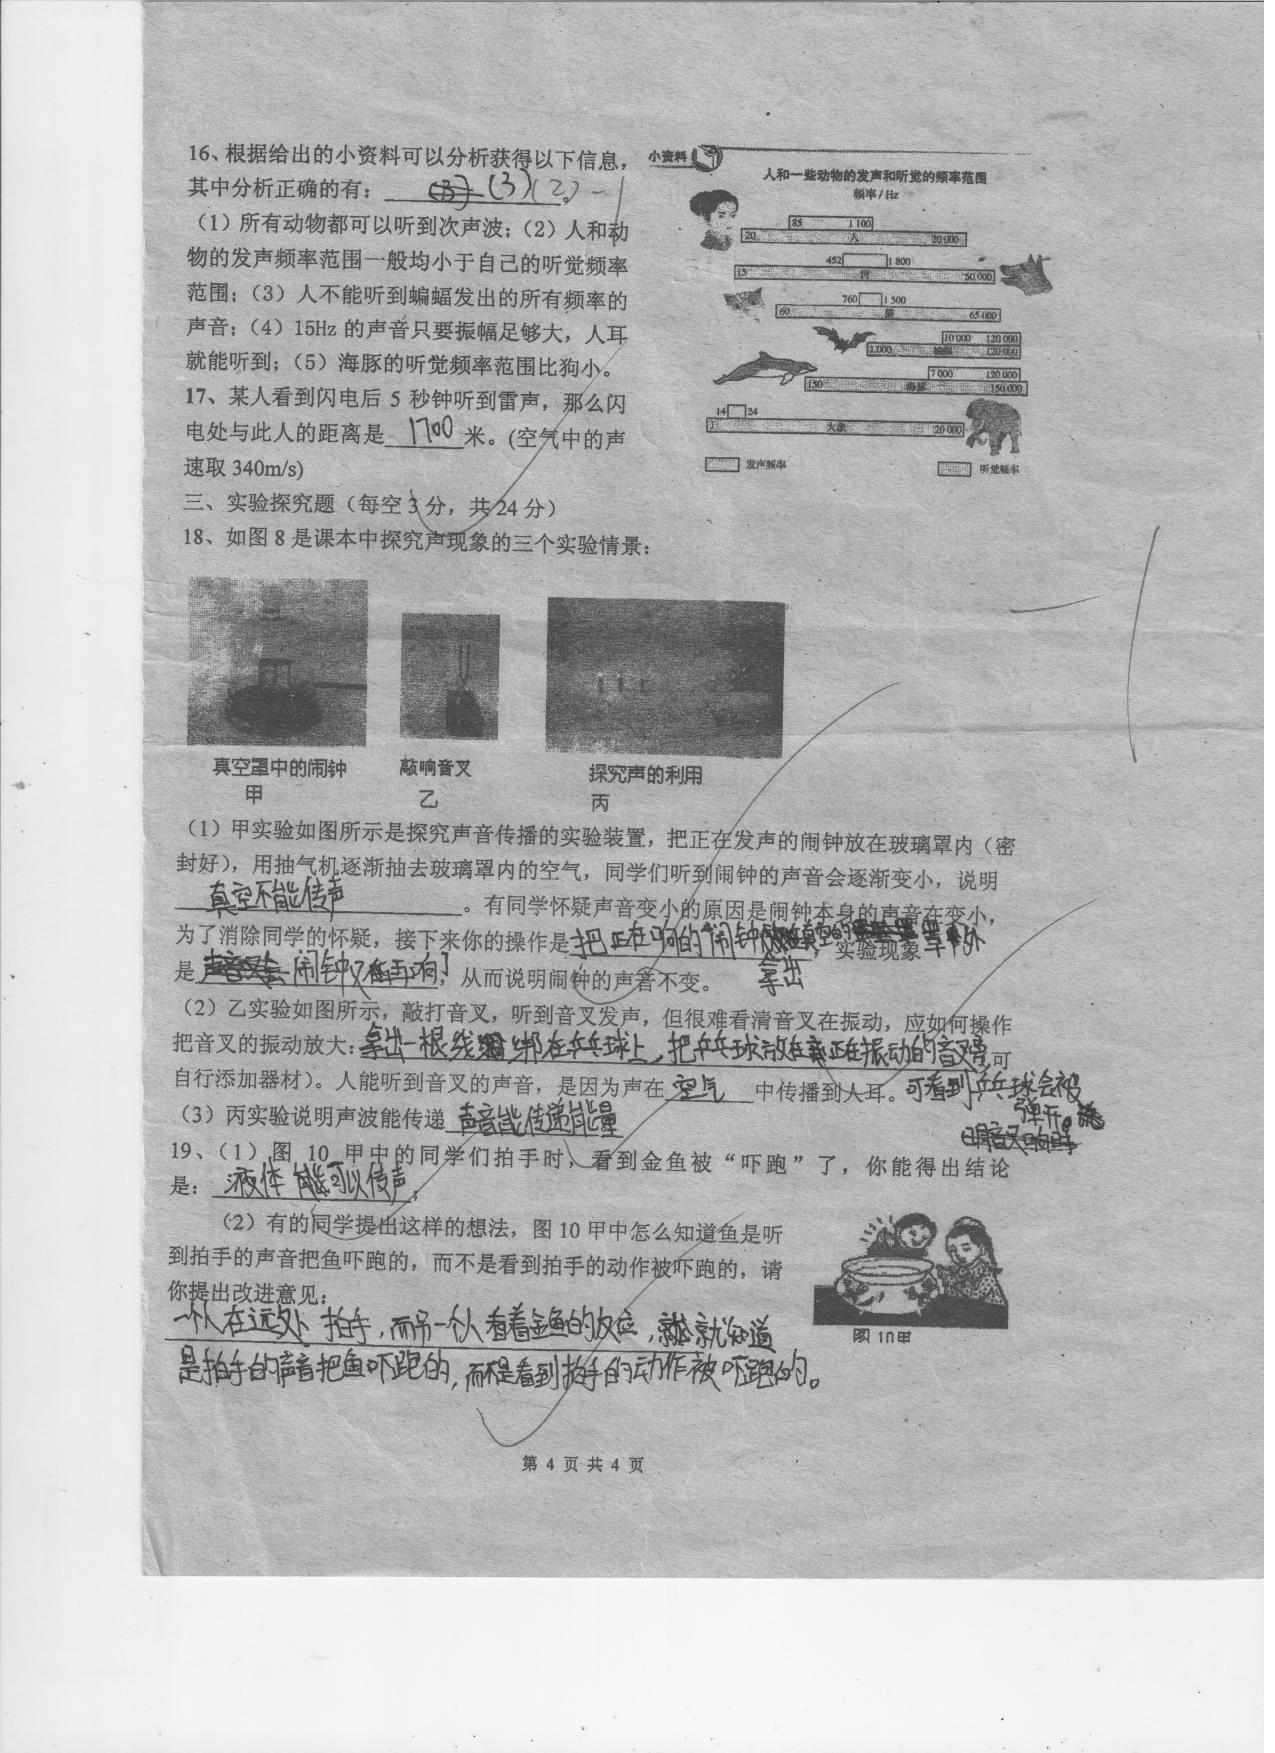 16、根据给出的小资料可以分析获得以下信息,
其中分析正确的有: (3) (2) 。
(1)所有动物都可以听到次声波;(2)人和动
物的发声频率范围一般均小于自己的听觉频率
范围;(3)人不能听到蝙蝠发出的所有频率的
声音;(4)15Hz 的声音只要振幅足够大,人耳
就能听到;(5)海豚的听觉频率范围比狗小。
17、某人看到闪电后 5 秒钟听到雷声,那么闪
电处与此人的距离是 1700 米。(空气中的声
速取 340m/s)
小资料
人和一些动物的发声和听觉的频率范围
频率/Hz
85 1 100
20 人 20 000
452 1 800
15 狗 50 000
760 1 500
60 猫 65 000
10 000 120 000
1 000 蝙蝠 120 000
7 000 120 000
150 海豚 150 000
14 24
1 大象 20 000
发声频率 听觉频率
三、实验探究题(每空 3 分,共 24 分)
18、如图 8 是课本中探究声现象的三个实验情景:
真空罩中的闹钟 敲响音叉 探究声的利用
甲 乙 丙
(1)甲实验如图所示是探究声音传播的实验装置,把正在发声的闹钟放在玻璃罩内(密
封好),用抽气机逐渐抽去玻璃罩内的空气,同学们听到闹钟的声音会逐渐变小,说明
真空不能传声 。有同学怀疑声音变小的原因是闹钟本身的声音在变小,
为了消除同学的怀疑,接下来你的操作是 把正在响的闹钟 真空的 罩 外 ,实验现象
拿出
是 闹钟 响 ,从而说明闹钟的声音不变。
(2)乙实验如图所示,敲打音叉,听到音叉发声,但很难看清音叉在振动,应如何操作
把音叉的振动放大: 拿出一根线 绑在乒乓球上,把乒乓球放在 正在振动的音叉旁 可
自行添加器材)。人能听到音叉的声音,是因为声在 空气 中传播到人耳。可看到乒乓球会被
弹开。
(3)丙实验说明声波能传递 声音能传递能量
19、(1)图 10 甲中的同学们拍手时,看到金鱼被“吓跑”了,你能得出结论
是: 液体 可以传声 ;
(2)有的同学提出这样的想法,图 10 甲中怎么知道鱼是听
到拍手的声音把鱼吓跑的,而不是看到拍手的动作被吓跑的,请
你提出改进意见:
一个人在远处 拍手,而另一个人看着金鱼的反应, 就知道
是拍手的声音把鱼吓跑的,而不是看到拍手的动作被吓跑的。
图 10 甲
第 4 页 共 4 页